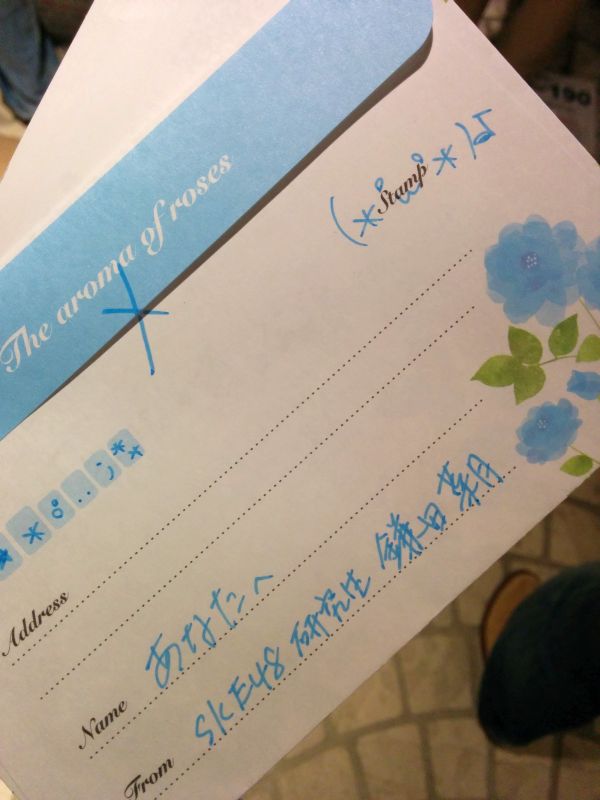 The aroma of roses
Stamp
Address
Name あなたへ
From SKE48 研究生 鎌田菜月
190